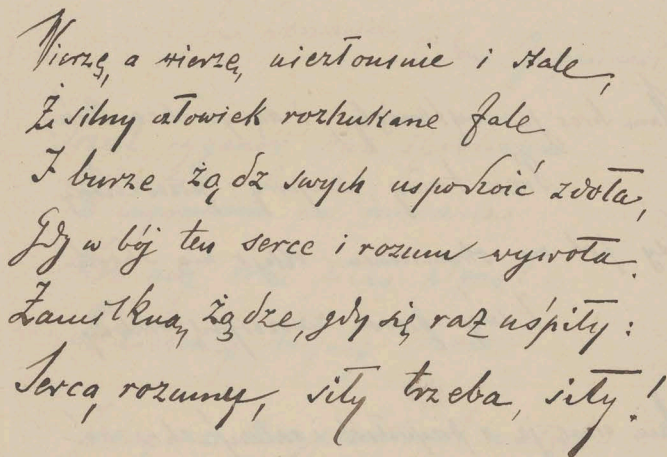 Wierzę, a wierzę, niezłomnie i stale,
Że silny człowiek rozhukane fale
I burze żądz swych uspokoić zdoła,
Gdy w bój ten serce i rozum wywoła.
Zamilkną żądze, gdy się raz uśpiły:
Serca, rozumu, siły trzeba, siły!